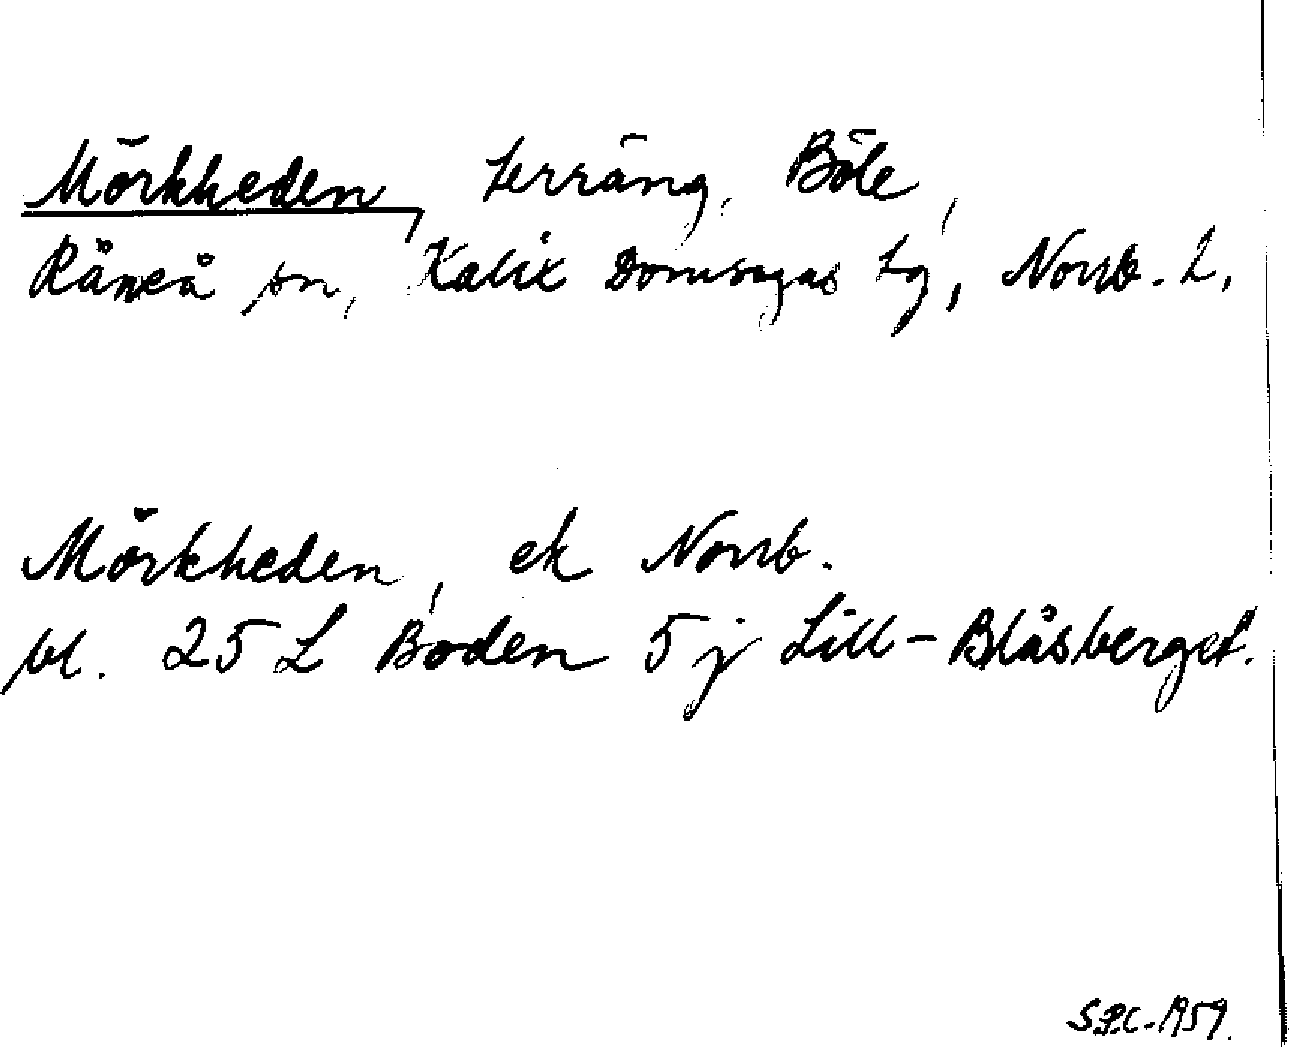 Mörkheden, terräng, Böle,
Råneå sn, Kalix Domsagas tg, Norrb. L.
Mörkheden, ek Norrb.
bl. 25 L Boden 5 j Lill-Blåsberget.
S.P.C. 1959.